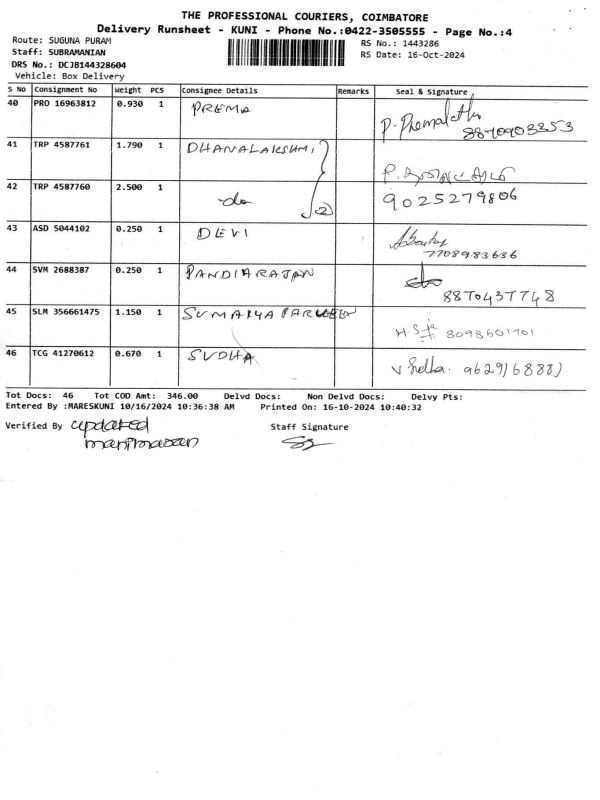 THE PROFESSIONAL COURIERS, COIMBATORE
Delivery Runsheet - KUNI - Phone No.:0422-3505555 - Page No.:4
Route: SUGUNA PURAM
RS No.: 1443286
Staff: SUBRAMANIAN
RS Date: 16-Oct-2024
DRS No.: DCJB144328604
Vehicle: Box Delivery
S No Consignment No Weight PCS Consignee Details Remarks Seal & Signature
40 PRO 16963812 0.930 1 PREMA P. Premalatha
8870903353
41 TRP 4587761 1.790 1 DHANALAKSHMI
42 TRP 4587760 2.500 1 -do- (2) 9025279806
43 ASD 5044102 0.250 1 DEVI
7708983636
44 SVM 2688387 0.250 1 PANDIARAJAN
8870437748
45 SLM 356661475 1.150 1 SUMAIYA PARVEEN 8098601701
46 TCG 41270612 0.670 1 SUDHA
Tot Docs: 46 Tot COD Amt: 346.00 Delvd Docs: Non Delvd Docs: Delvy Pts:
Entered By :MARESKUNI 10/16/2024 10:36:38 AM Printed On: 16-10-2024 10:40:32
Verified By updated Staff Signature